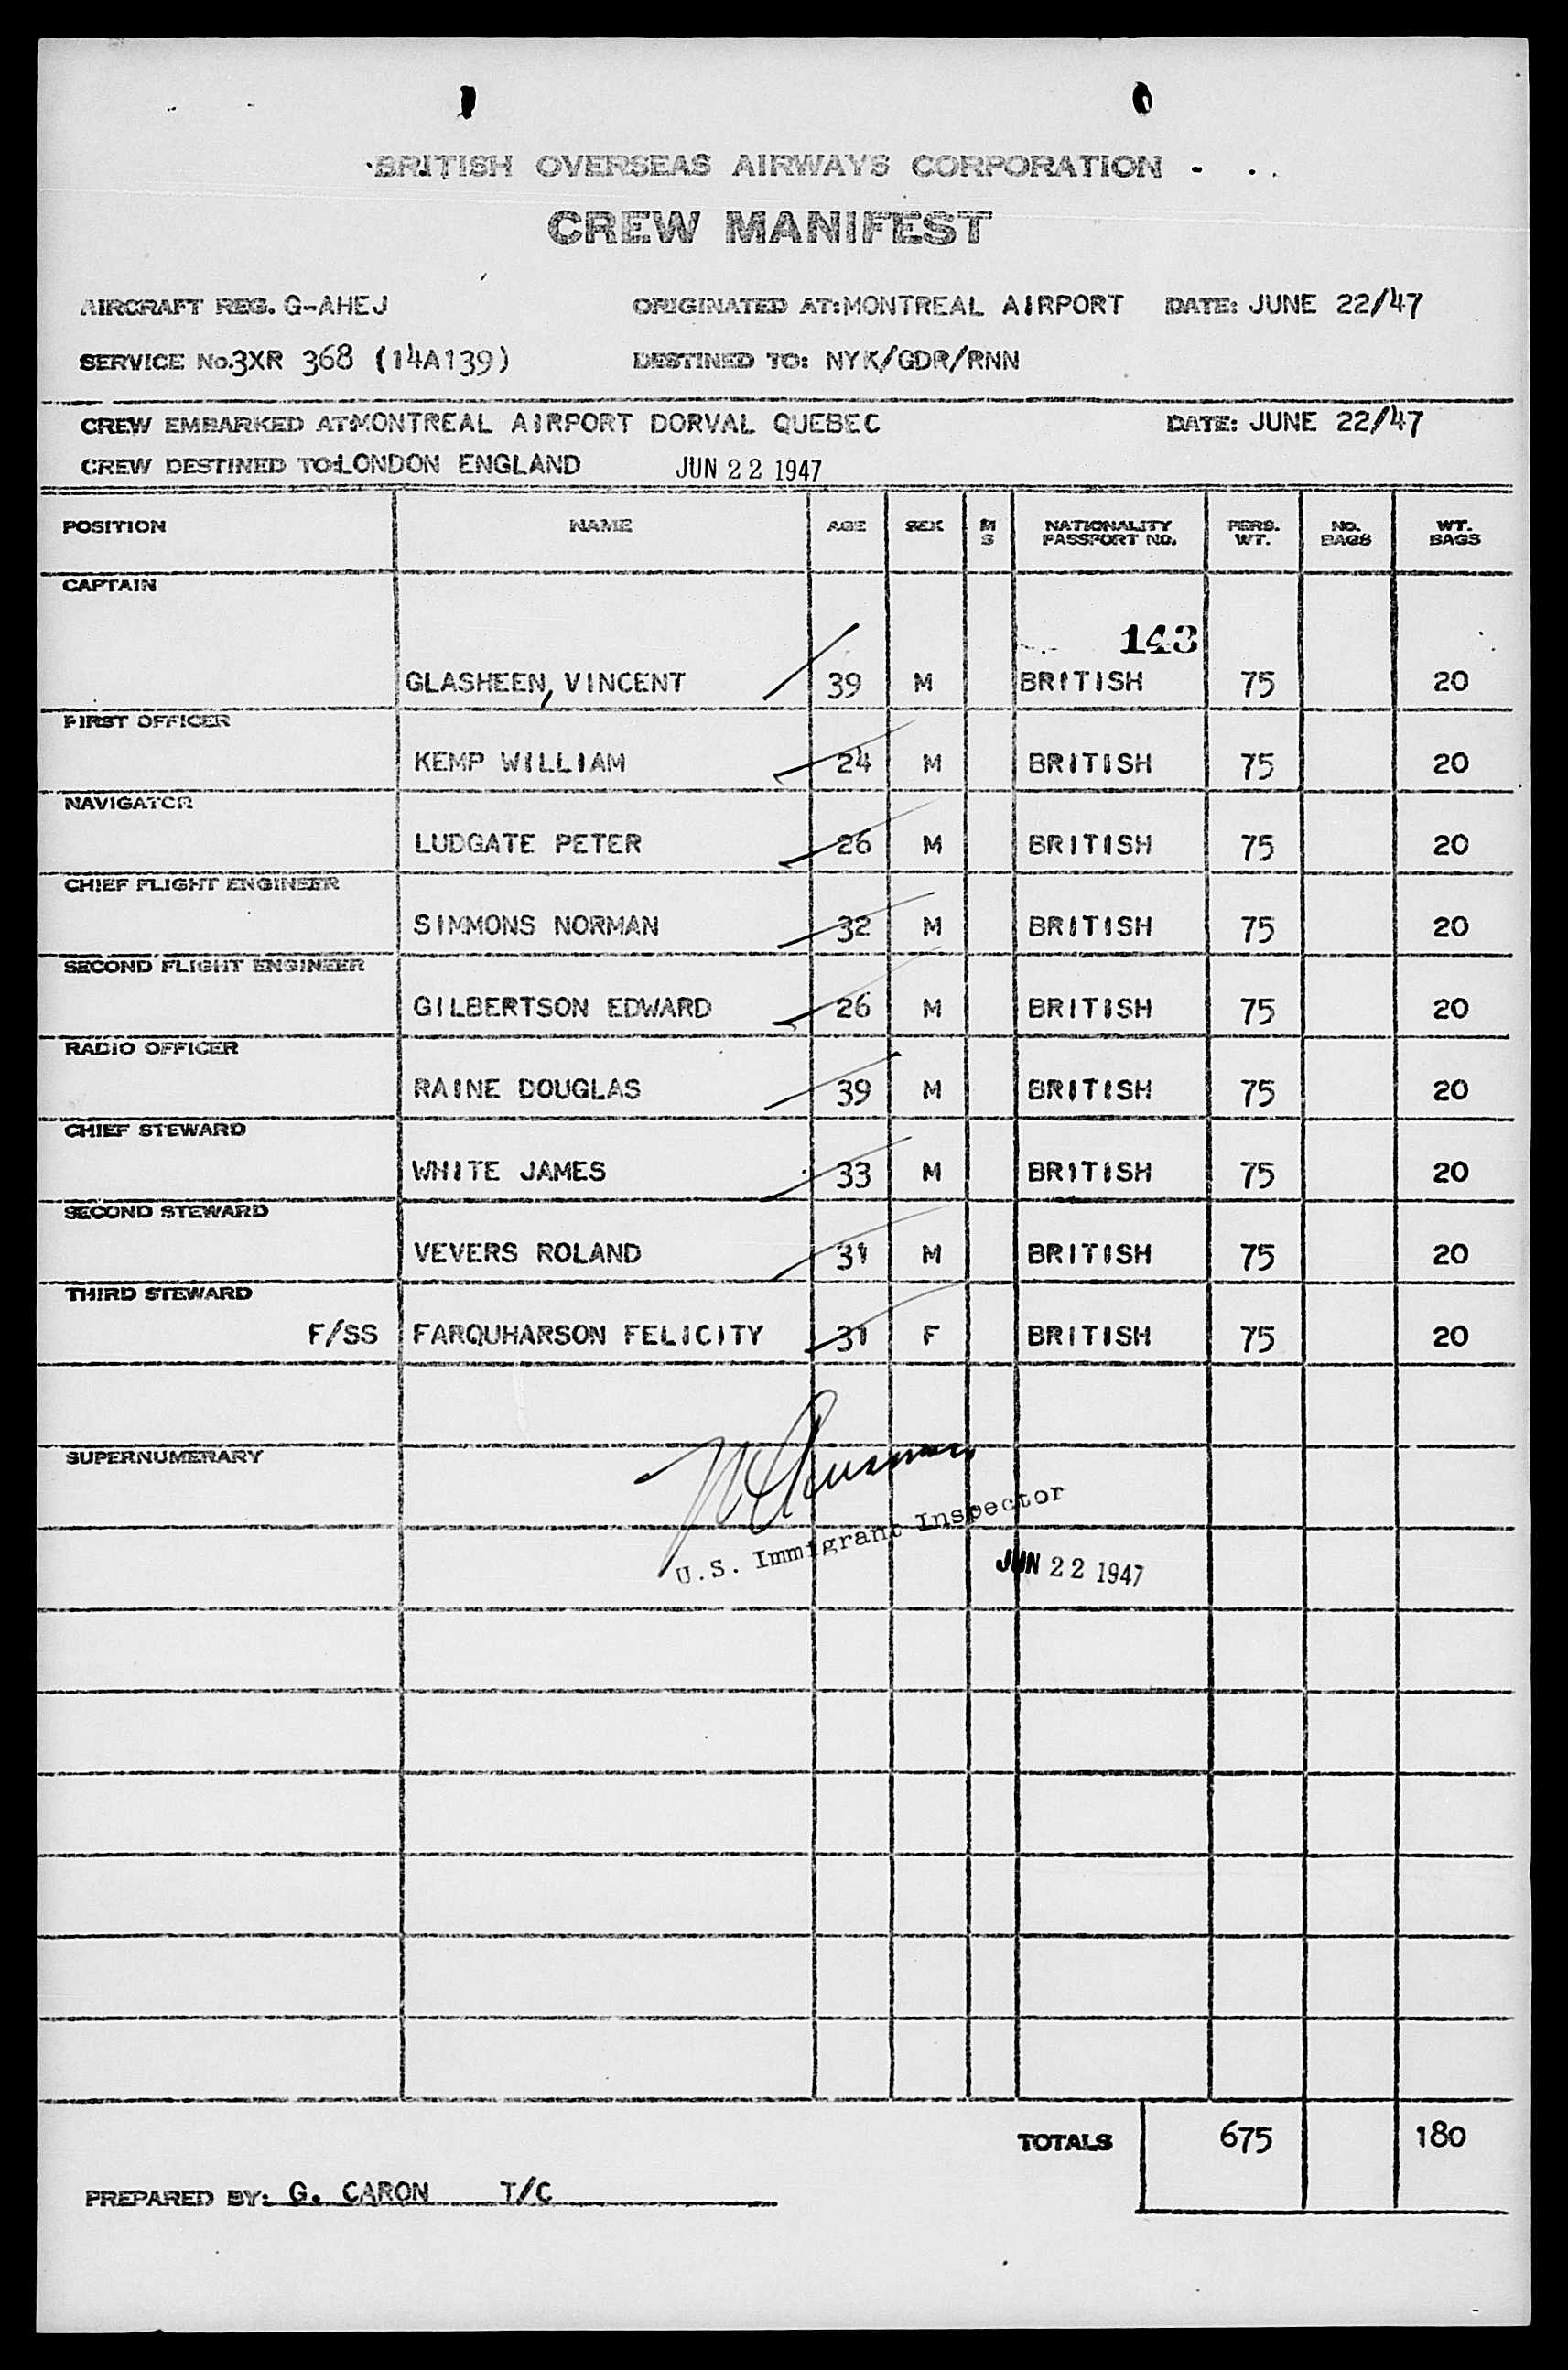 BRITISH OVERSEAS AIRWAYS CORPORATION
CREW MANIFEST
AIRCRAFT REG. G-AHEJ ORIGINATED AT: MONTREAL AIRPORT DATE: JUNE 22/47
SERVICE No. 3XR 368 (14A139) DESTINED TO: NYK/GDR/RNN
CREW EMBARKED AT MONTREAL AIRPORT DORVAL QUEBEC DATE: JUNE 22/47
CREW DESTINED TO: LONDON ENGLAND JUN 22 1947
POSITION NAME AGE SEX M S NATIONALITY PASSPORT NO. PERS. WT. NO. BAGS WT. BAGS
CAPTAIN
143
GLASHEEN, VINCENT 39 M BRITISH 75 20
FIRST OFFICER
KEMP WILLIAM 24 M BRITISH 75 20
NAVIGATOR
LUDGATE PETER 26 M BRITISH 75 20
CHIEF FLIGHT ENGINEER
SIMMONS NORMAN 32 M BRITISH 75 20
SECOND FLIGHT ENGINEER
GILBERTSON EDWARD 26 M BRITISH 75 20
RADIO OFFICER
RAINE DOUGLAS 39 M BRITISH 75 20
CHIEF STEWARD
WHITE JAMES 33 M BRITISH 75 20
SECOND STEWARD
VEVERS ROLAND 31 M BRITISH 75 20
THIRD STEWARD
F/SS FARQUHARSON FELICITY 31 F BRITISH 75 20
SUPERNUMERARY
U.S. Immigrant Inspector
JUN 22 1947
TOTALS 675 180
PREPARED BY: G. CARON T/C